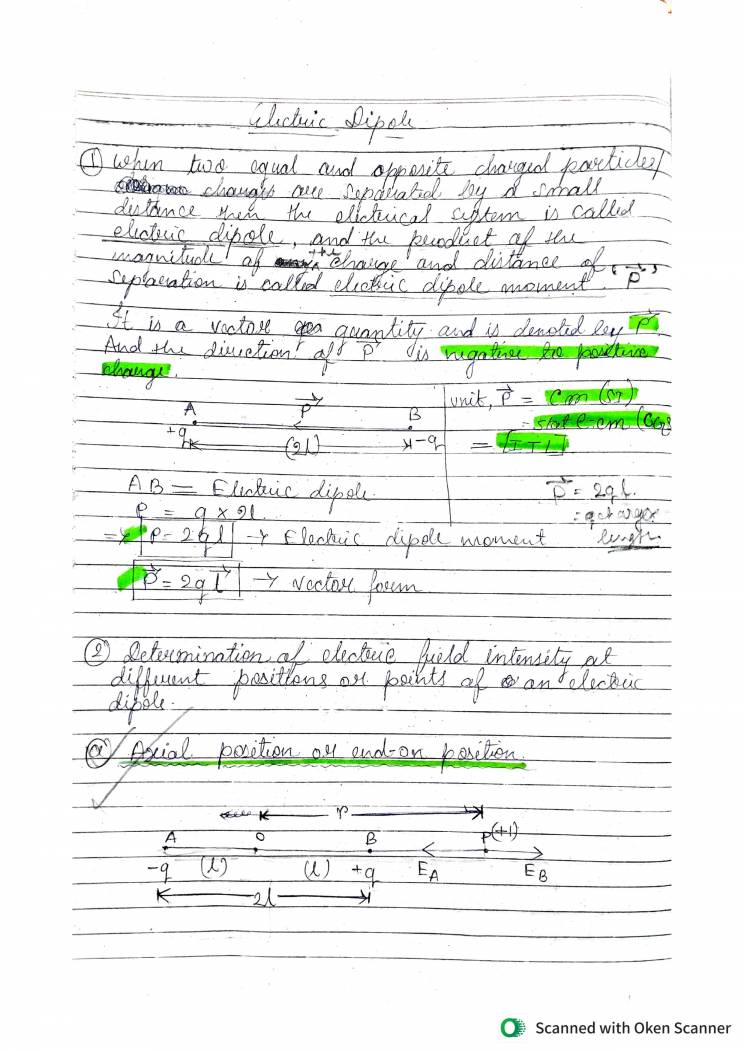 Electric Dipole
① When two equal and opposite charged particles/
charges are separated by a small
distance then the electrical system is called
electric dipole, and the product of the
magnitude of charge and distance of
separation is called electric dipole moment. "P⃗"
It is a vector quantity and is denoted by P⃗.
And the direction of P⃗ is negative to positive
charge.
A P⃗ B
+q (2l) -q
unit, P⃗ = Cm (SI)
= stat C-cm (CGS
= [ITL]
AB = Electric dipole.
P = q × 2l
=> P = 2ql → Electric dipole moment
P⃗ = 2q l⃗ → vector form
P⃗ = 2ql.
= q charge ×
length
② Determination of electric field intensity at
different positions or points of an electric
dipole.
ⓐ Axial position or end-on position.
r
A O B P(+1)
-q (l) (l) +q E_A E_B
2l
Scanned with Oken Scanner